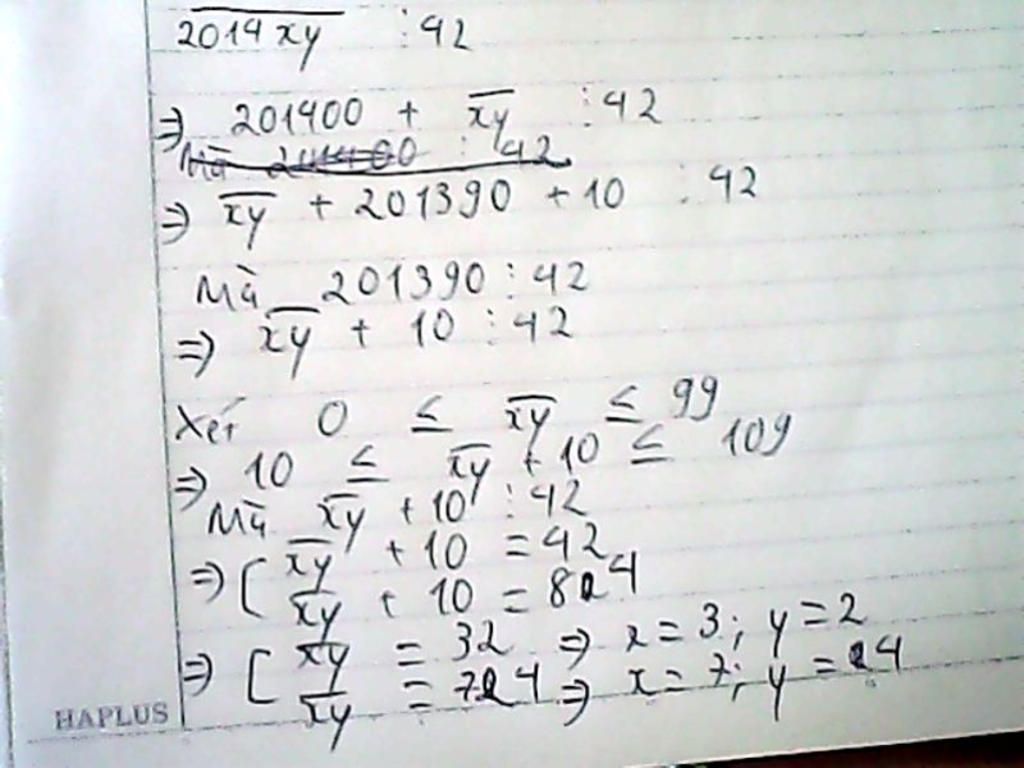 2014xy ⋮ 42
⇒ 201400 + xy ⋮ 42
Mà 201400 ⋮ 42
⇒ xy + 201390 + 10 ⋮ 42
Mà 201390 ⋮ 42
⇒ xy + 10 ⋮ 42
Xét 0 ≤ xy ≤ 99
⇒ 10 ≤ xy + 10 ≤ 109
Mà xy + 10 ⋮ 42
⇒ [ xy + 10 = 42
xy + 10 = 84
⇒ [ xy = 32 ⇒ x = 3; y = 2
xy = 74 ⇒ x = 7; y = 4
HAPLUS